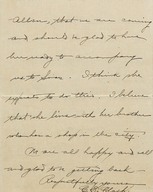 Allow, that we are coming
and should be glad to have
her ready to accompany
us to-you. I think she
expects to do this. I believe
that she lives with her brother
who has a shop in the city.
We are all happy and well
and glad to be getting back
Respectfully yours